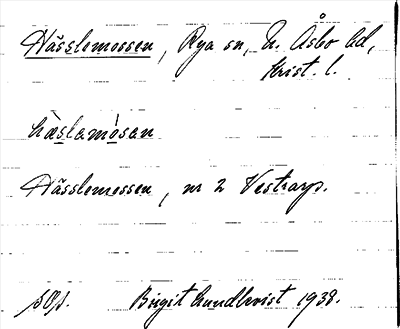 Hässlemossen, Rya sn, N. Åsbo hd,
Krist. l.
hæslamòsan
Hässlemossen, nr 2 Vestrarp.
Birgit Lundkvist 1938.